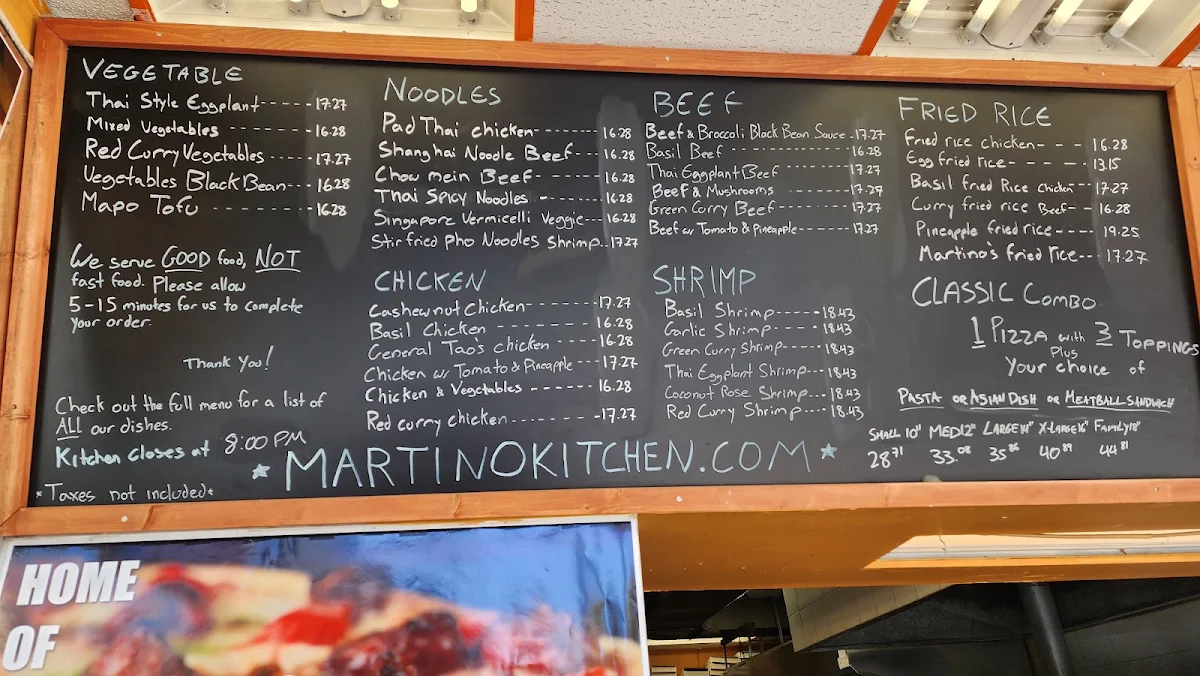 VEGETABLE
Thai Style Eggplant-----17.27
Mixed Vegetables --------16.28
Red Curry Vegetables -----17.27
Vegetables Black Bean---16.28
Mapo Tofu -- ------16.28
We serve GOOD food, NOT
fast food. Please allow
5-15 minutes for us to complete
your order.
Thank You!
Check out the full menu for a list of
ALL our dishes.
Kitchen closes at 8:00 PM
*Taxes not included*
NOODLES
Pad Thai chicken------- 16.28
Shanghai Noodle Beef--- 16.28
Chow mein Beef------- 16.28
Thai Spicy Noodles - ----- 16.28
Singapore Vermicelli Veggie---16.28
Stir fried Pho Noodles Shrimp..17.27
CHICKEN
Cashewnut Chicken-------17.27
Basil Chicken ---------16.28
General Tao's chicken ----16.28
Chicken w/ Tomato & Pineapple ---17.27
Chicken & Vegetables -------16.28
Red curry chicken---------17.27
BEEF
Beef & Broccoli Black Bean Sauce -17.27
Basil Beef ------------16.28
Thai Eggplant Beef 17.27
Beef & Mushrooms -------17.27
Green Curry Beef ------17.27
Beef w/ Tomato & Pineapple------17.27
SHRIMP
Basil Shrimp-----18.43
Garlic Shrimp----18.43
Green Curry Shrimp---18.43
Thai Eggplant Shrimp---18.43
Coconut Rose Shrimp---18.43
Red Curry Shrimp----18.43
FRIED RICE
Fried rice chicken- - - 16.28
Egg fried rice- - - --- 13.15
Basil fried Rice chicken---17.27
Curry fried rice Beef-- -16.28
Pineapple fried rice---- 19.25
Martino's fried rice---17.27
CLASSIC COMBO
1 PIZZA with 3 TOPPINGS
Plus
Your choice of
PASTA OR ASIAN DISH OR MEATBALL SANDWICH
SMALL 10" MED12" LARGE14" X-LARGE16" FAMILY18"
28.71 33.08 35.86 40.89 44.81
★ MARTINOKITCHEN.COM ★
HOME
OF